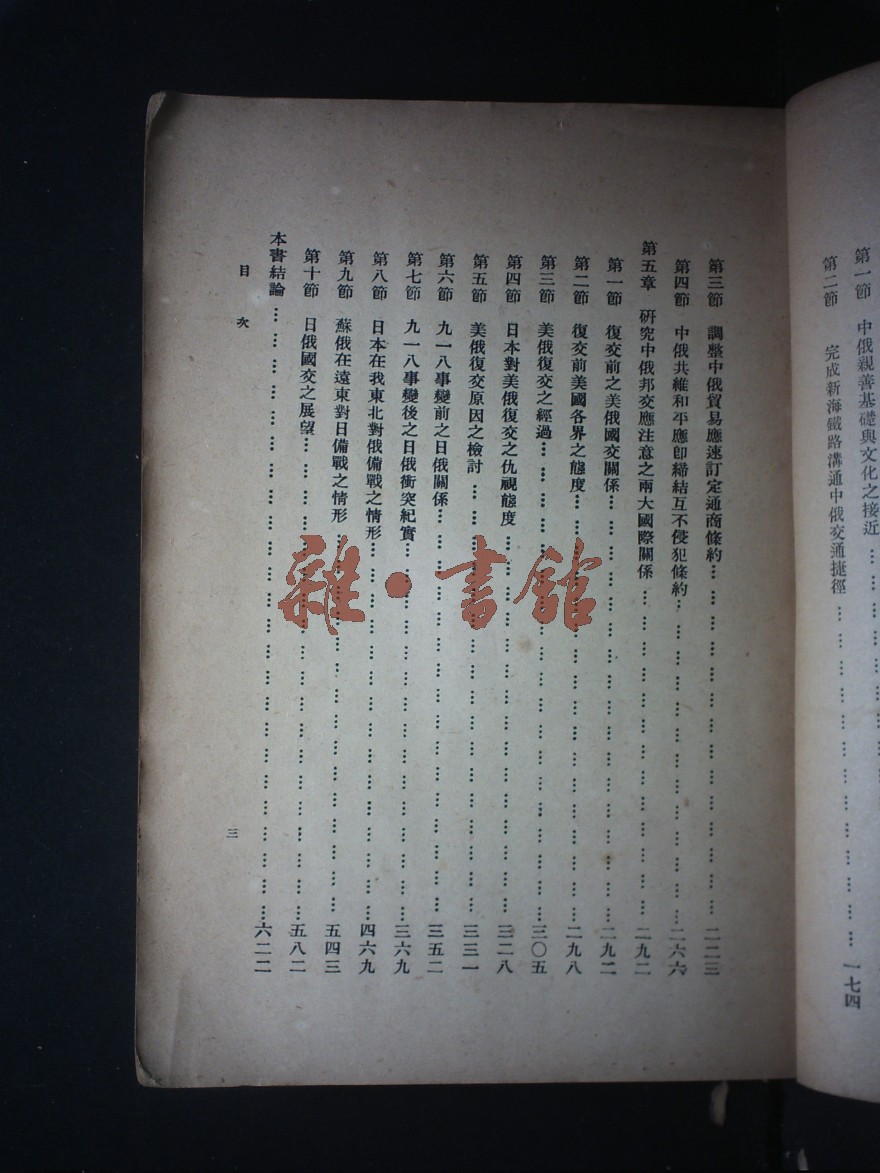 第一節 中俄親善基礎與文化之接近………………
第二節 完成新海鐵路溝通中俄交通捷徑………………一七四
第三節 調整中俄貿易應速訂定通商條約………………二二三
第四節 中俄共維和平應卽締結互不侵犯條約………………二六六
第五章 研究中俄邦交應注意之兩大國際關係………………二九二
第一節 復交前之美俄國交關係………………二九二
第二節 復交前美國各界之態度………………二九八
第三節 美俄復交之經過………………三〇五
第四節 日本對美俄復交之仇視態度………………三二八
第五節 美俄復交原因之檢討………………三三一
第六節 九一八事變前之日俄關係………………三五二
第七節 九一八事變後之日俄衝突紀實………………三六九
第八節 日本在我東北對俄備戰之情形………………四六九
第九節 蘇俄在遠東對日備戰之情形………………五四三
第十節 日俄國交之展望………………五八二
本書結論………………六二二
目次
三
雜·書館